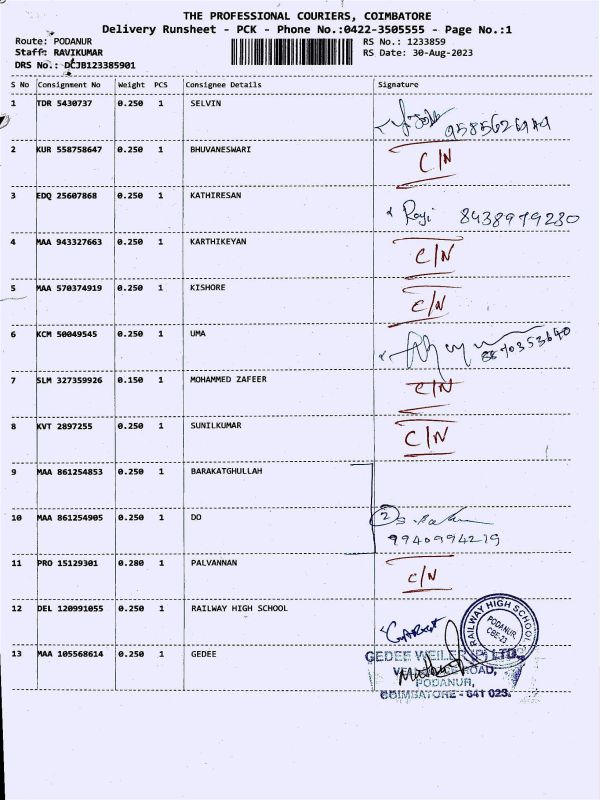 THE PROFESSIONAL COURIERS, COIMBATORE
Delivery Runsheet - PCK - Phone No.:0422-3505555 - Page No.:1
Route: PODANUR RS No.: 1233859
Staff: RAVIKUMAR RS Date: 30-Aug-2023
DRS No.: DCJB123385901
S No Consignment No Weight PCS Consignee Details Signature
1 TDR 5430737 0.250 1 SELVIN
2 KUR 558758647 0.250 1 BHUVANESWARI C/N
3 EDQ 25607868 0.250 1 KATHIRESAN Raji 8438979230
4 MAA 943327663 0.250 1 KARTHIKEYAN C/N
5 MAA 570374919 0.250 1 KISHORE C/N
6 KCM 50049545 0.250 1 UMA 8870353640
7 SLM 327359926 0.150 1 MOHAMMED ZAFEER C/N
8 KVT 2897255 0.250 1 SUNILKUMAR C/N
9 MAA 861254853 0.250 1 BARAKATGHULLAH
10 MAA 861254905 0.250 1 DO 2
9940994219
11 PRO 15129301 0.280 1 PALVANNAN C/N
12 DEL 120991055 0.250 1 RAILWAY HIGH SCHOOL
RAILWAY HIGH SCHOOL
PODANUR
CBE-23
13 MAA 105568614 0.250 1 GEDEE
GEDEE WEILER (P) LTD.,
ROAD,
PODANUR,
COIMBATORE - 641 023.